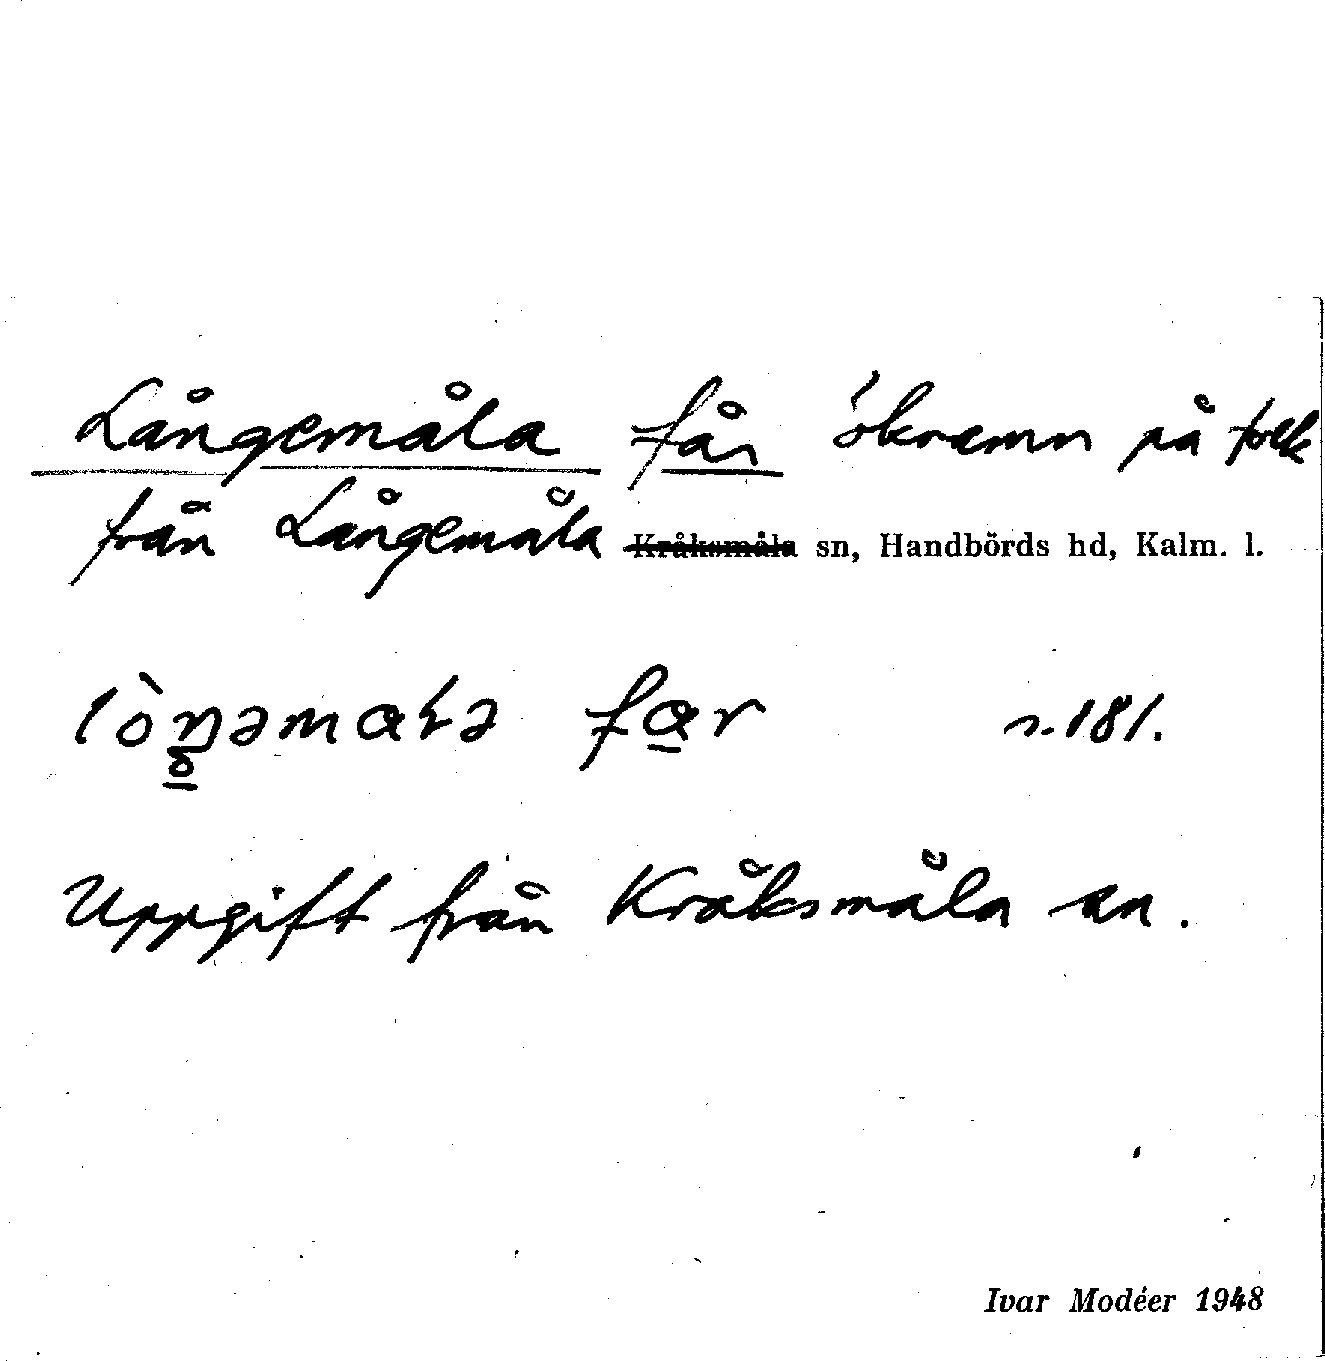 Långemåla får öknamn på folk
från Långemåla Kråksmåla sn, Handbörds hd, Kalm. l.
s. 181.
Uppgift från Kråksmåla sn.
Ivar Modéer 1948